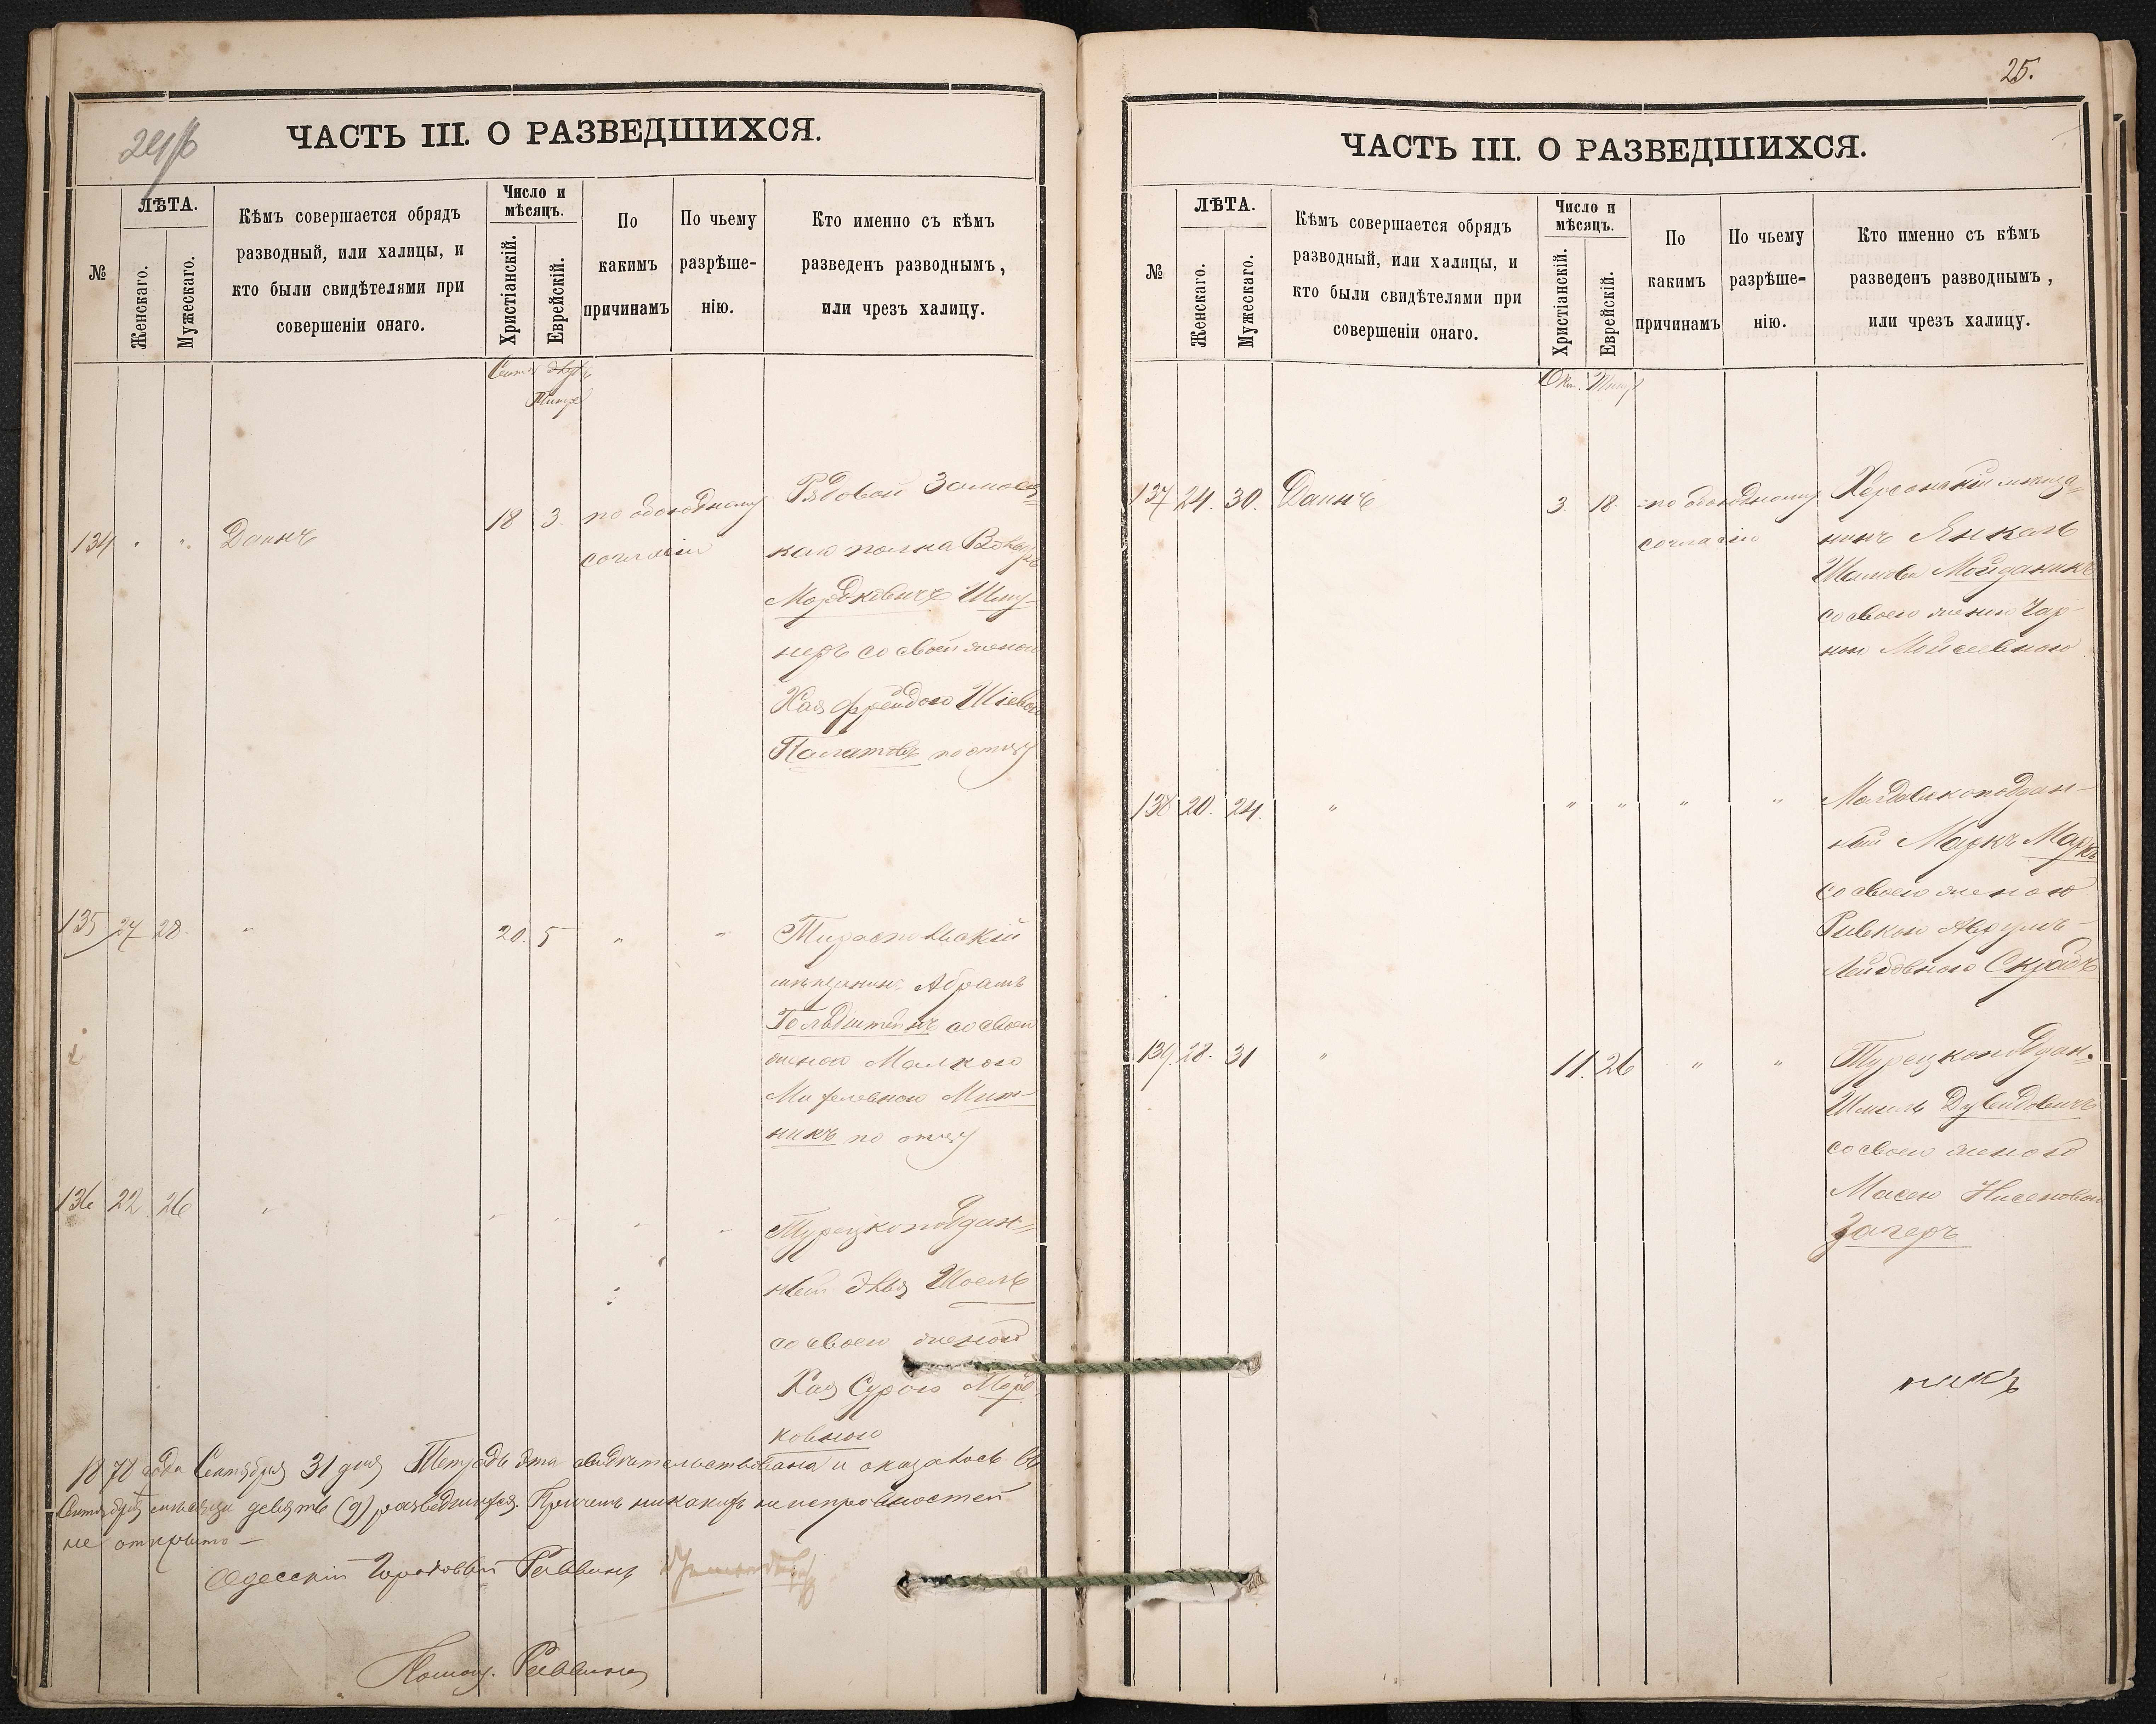 ЧАСТЬ III. О РАЗВЕДШИХСЯ.
№
ЛѢТА.
Женскаго.
Мужескаго.
Кѣмъ совершается обрядъ
разводный, или халицы, и
кто были свидѣтелями при
совершеніи онаго.
Число и
мѣсяцъ.
Христіанскій.
Еврейскій.
По
какимъ
причинамъ
По чьему
разрѣше-
нію.
Кто именно съ кѣмъ
разведенъ разводнымъ,
или чрезъ халицу.
134 " " Даинъ 18 3. по обоюдному
согласію
Рядовой
каго полка
Мордковичъ Шму-
леръ со своей женой
Хая Фрейдою
по отцу
135 27 28. " 20. 5 " "
Тираспольскій
мѣщанинъ Абрамъ
Гольдштейнъ со своей
женою Малкою
никъ по отцу
136 22 26 " " " " "
Турецкоподдан-
ный
со своею женой
Хая СуроюМорд
ковною
1878 года Сентября 31 дня Тетрадь эта свидѣтельствована и оказалось въ
Сентябрѣ мѣсяцѣ девять (9) разведшихся. Причемъ никакихъ неисправностей
не открыто —
Одесскій Городовой Раввинъ
Помощ. Раввина
25.
ЧАСТЬ III. О РАЗВЕДШИХСЯ.
№
ЛѢТА.
Женскаго.
Мужескаго.
Кѣмъ совершается обрядъ
разводный, или халицы, и
кто были свидѣтелями при
совершеніи онаго.
Число и
мѣсяцъ.
Христіанскій.
Еврейскій.
По
какимъ
причинамъ
По чьему
разрѣше-
нію.
Кто именно съ кѣмъ
разведенъ разводнымъ,
или чрезъ халицу.
Окт. Тишр
137 24. 30. Даинъ 3. 18. по обоюдному
согласію
Херсонскій мѣща-
нинъ Янкель
Мойданикъ
со своею женою Чар-
ною Мойсеевною
138 20. 24. " " " " "
Молдавскоподдан-
ный Маркъ Маркъ
со своею женою
Ривкою
Лейбовною
139. 28. 31 " 11. 26 " "
Турецкоподдан.
Шмиль Дувидовичъ
со своею женою
Масею Нисеновой
Загеръ